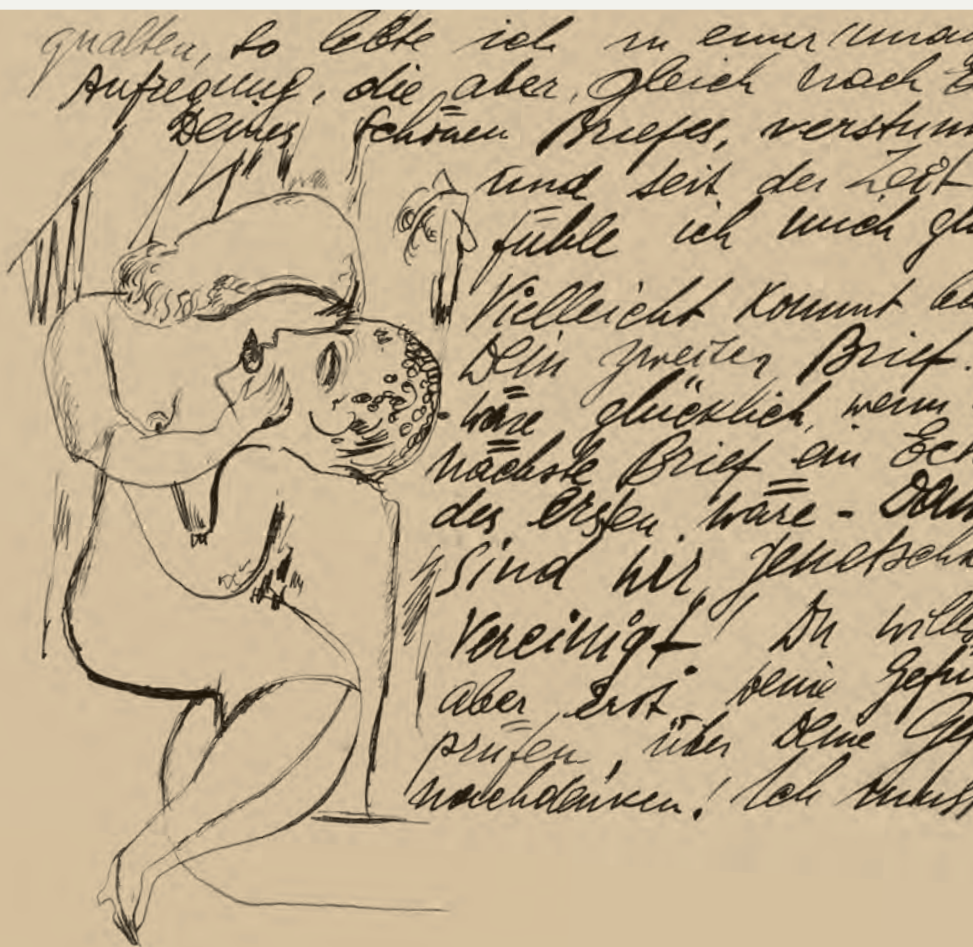 qualten, so lebte ich in einer
Aufregung, die aber, gleich nach
Deines schönen Briefes, verstum
und seit der Zeit
fühle ich mich
Vielleicht kommt
Dein zweiter Brief.
wäre glücklich, wenn
nächste Brief ein Ech
des ersten wäre - Dan
sind wir
Vereinigt! Du will
aber erst Deine Gefü
prüfen, über Deine Gef
nachdenken! Ich muss